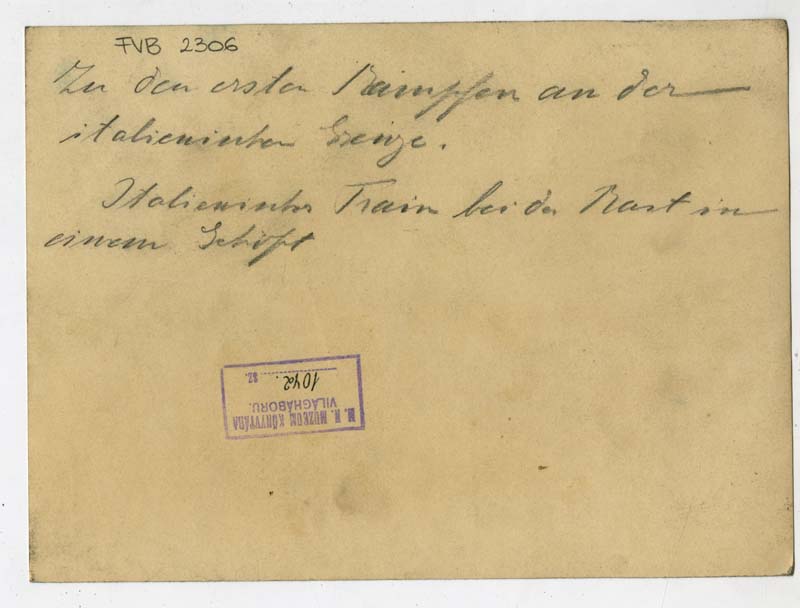 FVB 2306
Zu den ersten Kämpfen an der
italienischen Grenze.
Italienischer Train bei der Rast in
einem Gehöft
M. N. MUZEUM KÖNYVTÁRA
VILÁGHÁBORU.
1042. SZ.